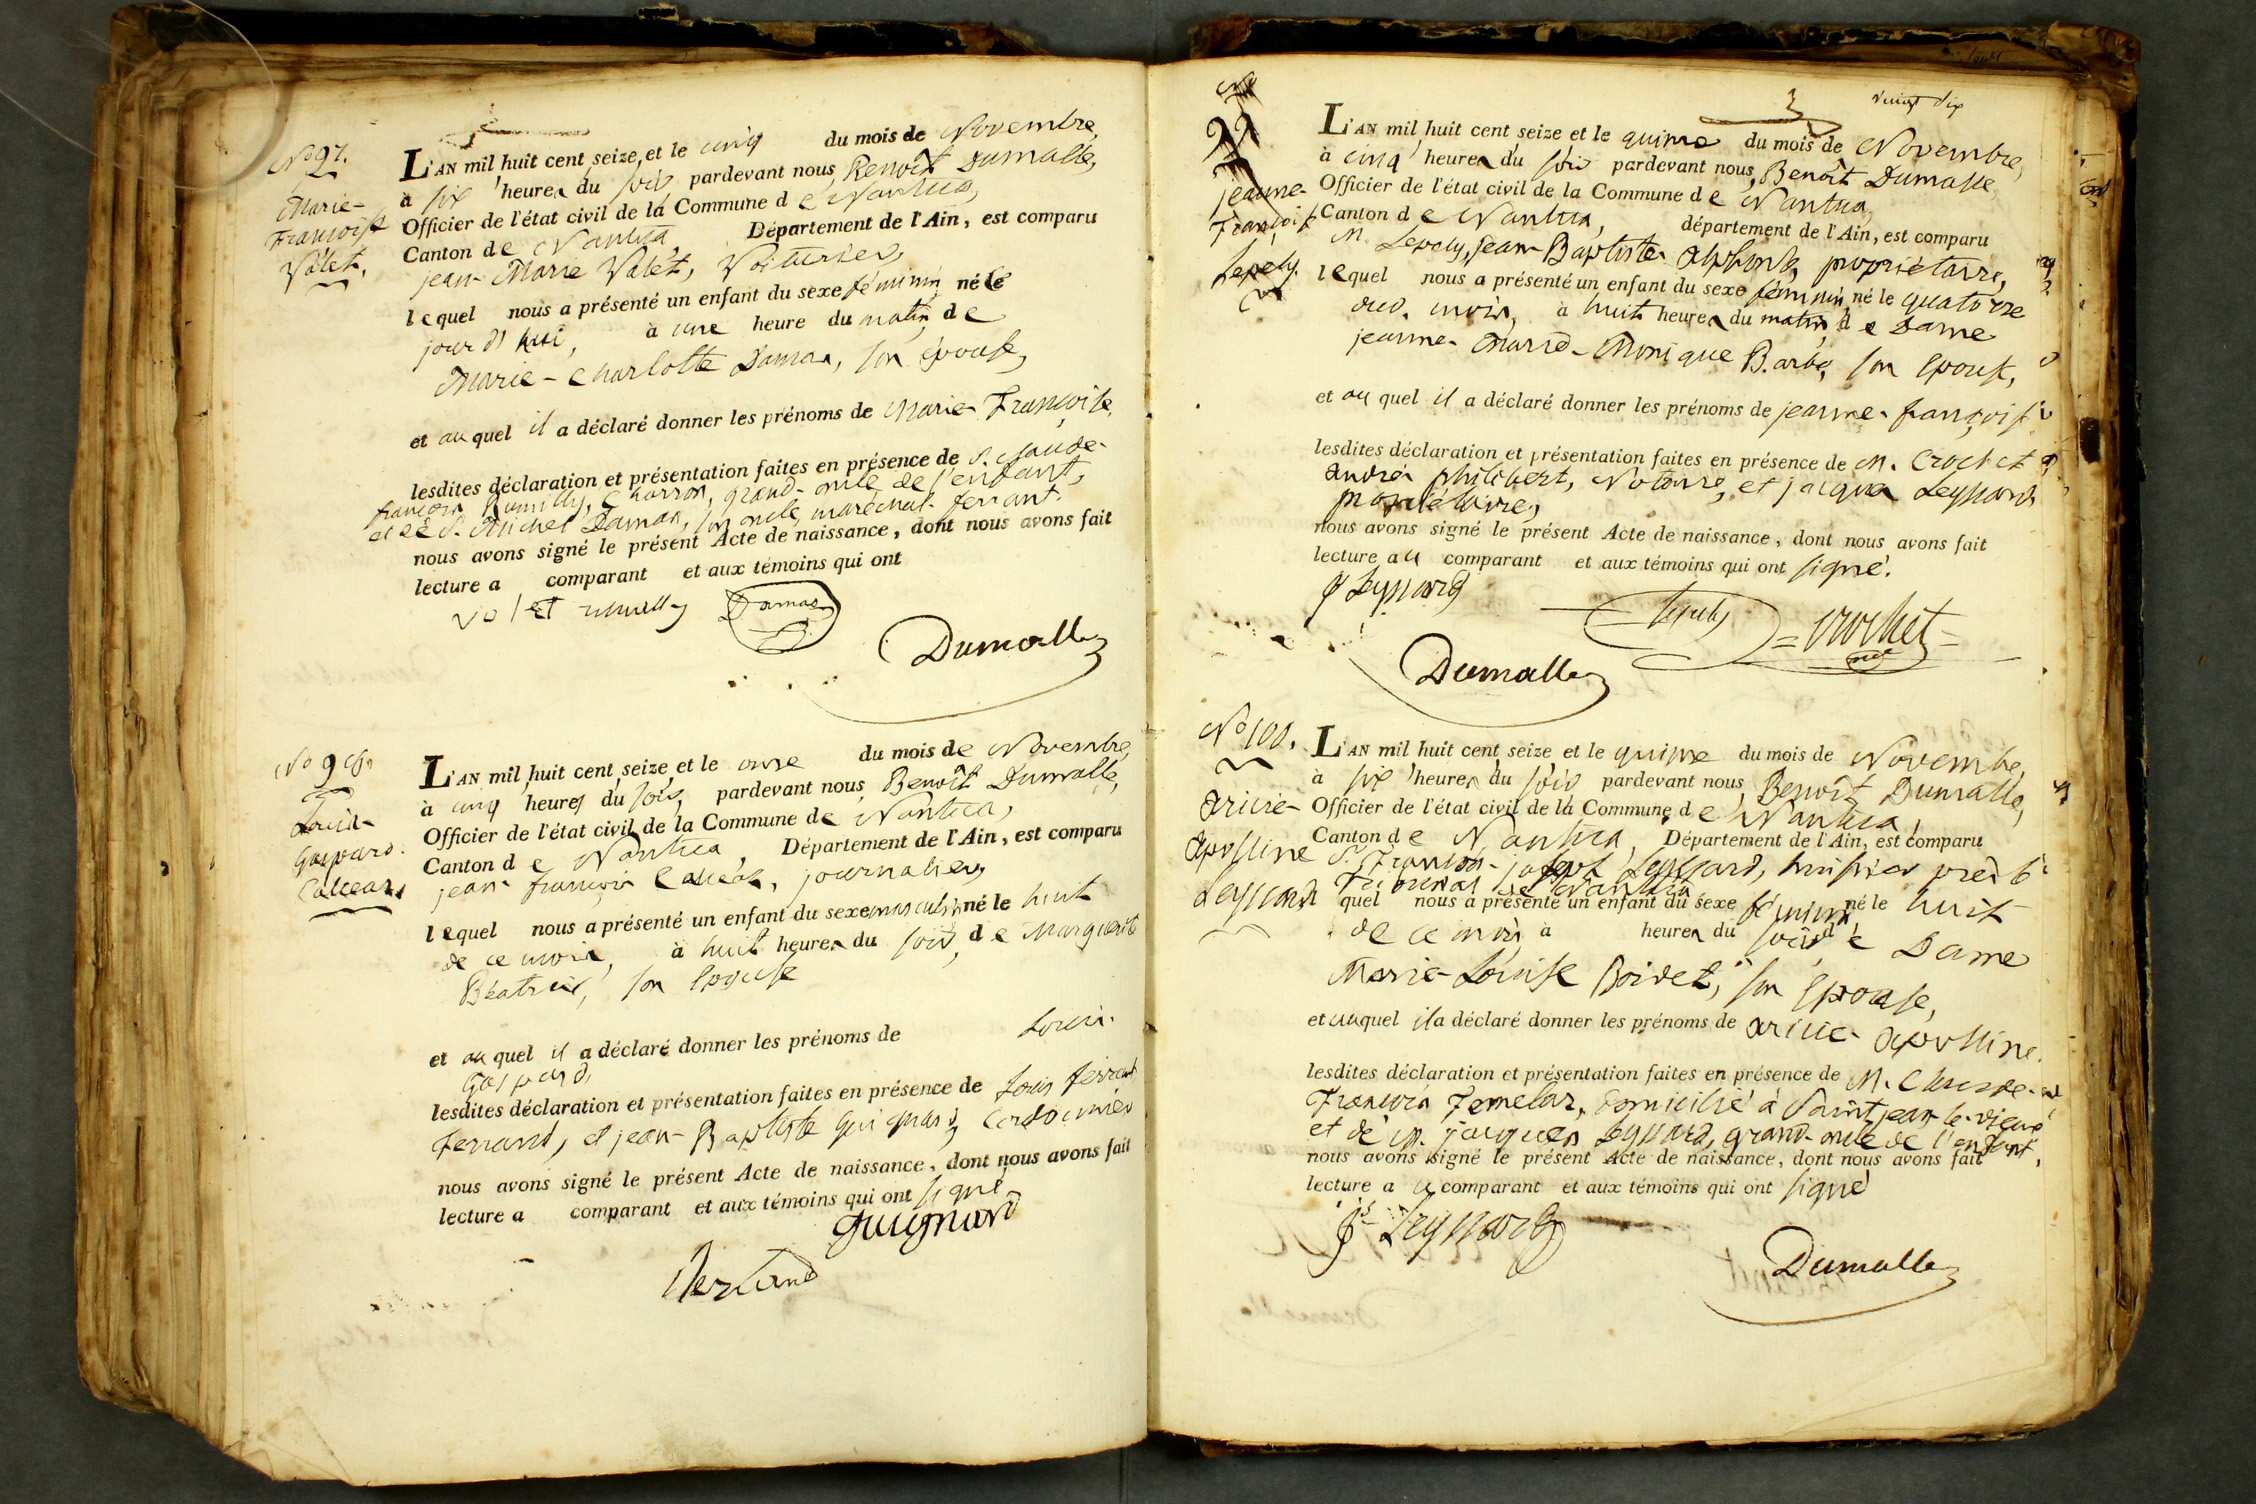 N° 97.
Marie-
Françoise
Valet.
L'AN mil huit cent seize, et le cinq du mois de Novembre,
à six heures du soir pardevant nous, Benoît Dumalle,
Officier de l'état civil de la Commune de Nantua,
Canton de Nantua, Département de l'Ain, est comparu
jean-Marie Valet, Voiturier,
lequel nous a présenté un enfant du sexe féminin né le
jour d'hui, à une heure du matin, de
Marie-Charlotte Damas, son épouse,
et au quel il a déclaré donner les prénoms de Marie-Françoise,
lesdites déclaration et présentation faites en présence de S. Claude-
françois Rumilly, Charron, grand-oncle de l'enfant,
et de S. Michel Damas, son oncle, maréchal-ferrant.
nous avons signé le présent Acte de naissance, dont nous avons fait
lecture a comparant et aux témoins qui ont
valet rumilly Damas
Dumalle
N° 98.
Louis-
Gaspard
L'AN mil huit cent seize, et le onze du mois de Novembre,
à cinq heures du soir, pardevant nous, Benoît Dumalle,
Officier de l'état civil de la Commune de Nantua,
Canton de Nantua, Département de l'Ain, est comparu
jean-françois journalier,
lequel nous a présenté un enfant du sexe masculin né le huit
de ce mois, à huit heures du soir, de Marguerite
Béatrix, son Epouse
et au quel il a déclaré donner les prénoms de Louis-
Gaspard,
lesdites déclaration et présentation faites en présence de Louis ferrand
Ferrand, et jean-Baptiste Guignard, Cordonnier
nous avons signé le présent Acte de naissance, dont nous avons fait
lecture a comparant et aux témoins qui ont signé,
guignard
vingt dix
N°
99
jeanne-
Françoise
Lepely.
L'AN mil huit cent seize et le quinze du mois de Novembre,
à cinq heures du soir pardevant nous, Benoît Dumalle,
Officier de l'état civil de la Commune de Nantua,
Canton de Nantua, département de l'Ain, est comparu
M. Lepely, jean-Baptiste-Alphonse, propriétaire,
lequel nous a présenté un enfant du sexe féminin, né le quatorze
dud. mois, à huit heures du matin, de Dame
jeanne-Marie-Monique Barbe, son Epouse,
et au quel il a déclaré donner les prénoms de jeanne-françoise
lesdites déclaration et présentation faites en présence de M. Crochet
andré philibert, Notaire, et jacques Leyssard
propriétaire,
nous avons signé le présent Acte de naissance, dont nous avons fait
lecture au comparant et aux témoins qui ont signé.
J Leyssard
Lepely
Crochet
Dumalle
N° 100.
apolline
Leyssard
L'AN mil huit cent seize, et le quinze du mois de Novembre,
à six heures du soir pardevant nous, Benoît Dumalle,
Officier de l'état civil de la Commune de Nantua,
Canton de Nantua, Département de l'Ain, est comparu
S. François-joseph Leyssard, huissier près le
Tribunal de Nantua
quel nous a présenté un enfant du sexe féminin né le huit
de ce mois, à heures du soir, de Dame
Marie-Louise Boivet, son Epouse,
et auquel il a déclaré donner les prénoms de apolline.
lesdites déclaration et présentation faites en présence de M. Claude-
François Temelas, domicilié à Saint jean-le-vieux
et de M. jacques Leyssard, grand-oncle de l'enfant,
nous avons signé le présent Acte de naissance, dont nous avons fait
lecture au comparant et aux témoins qui ont signé
Leyssard
Dumalle